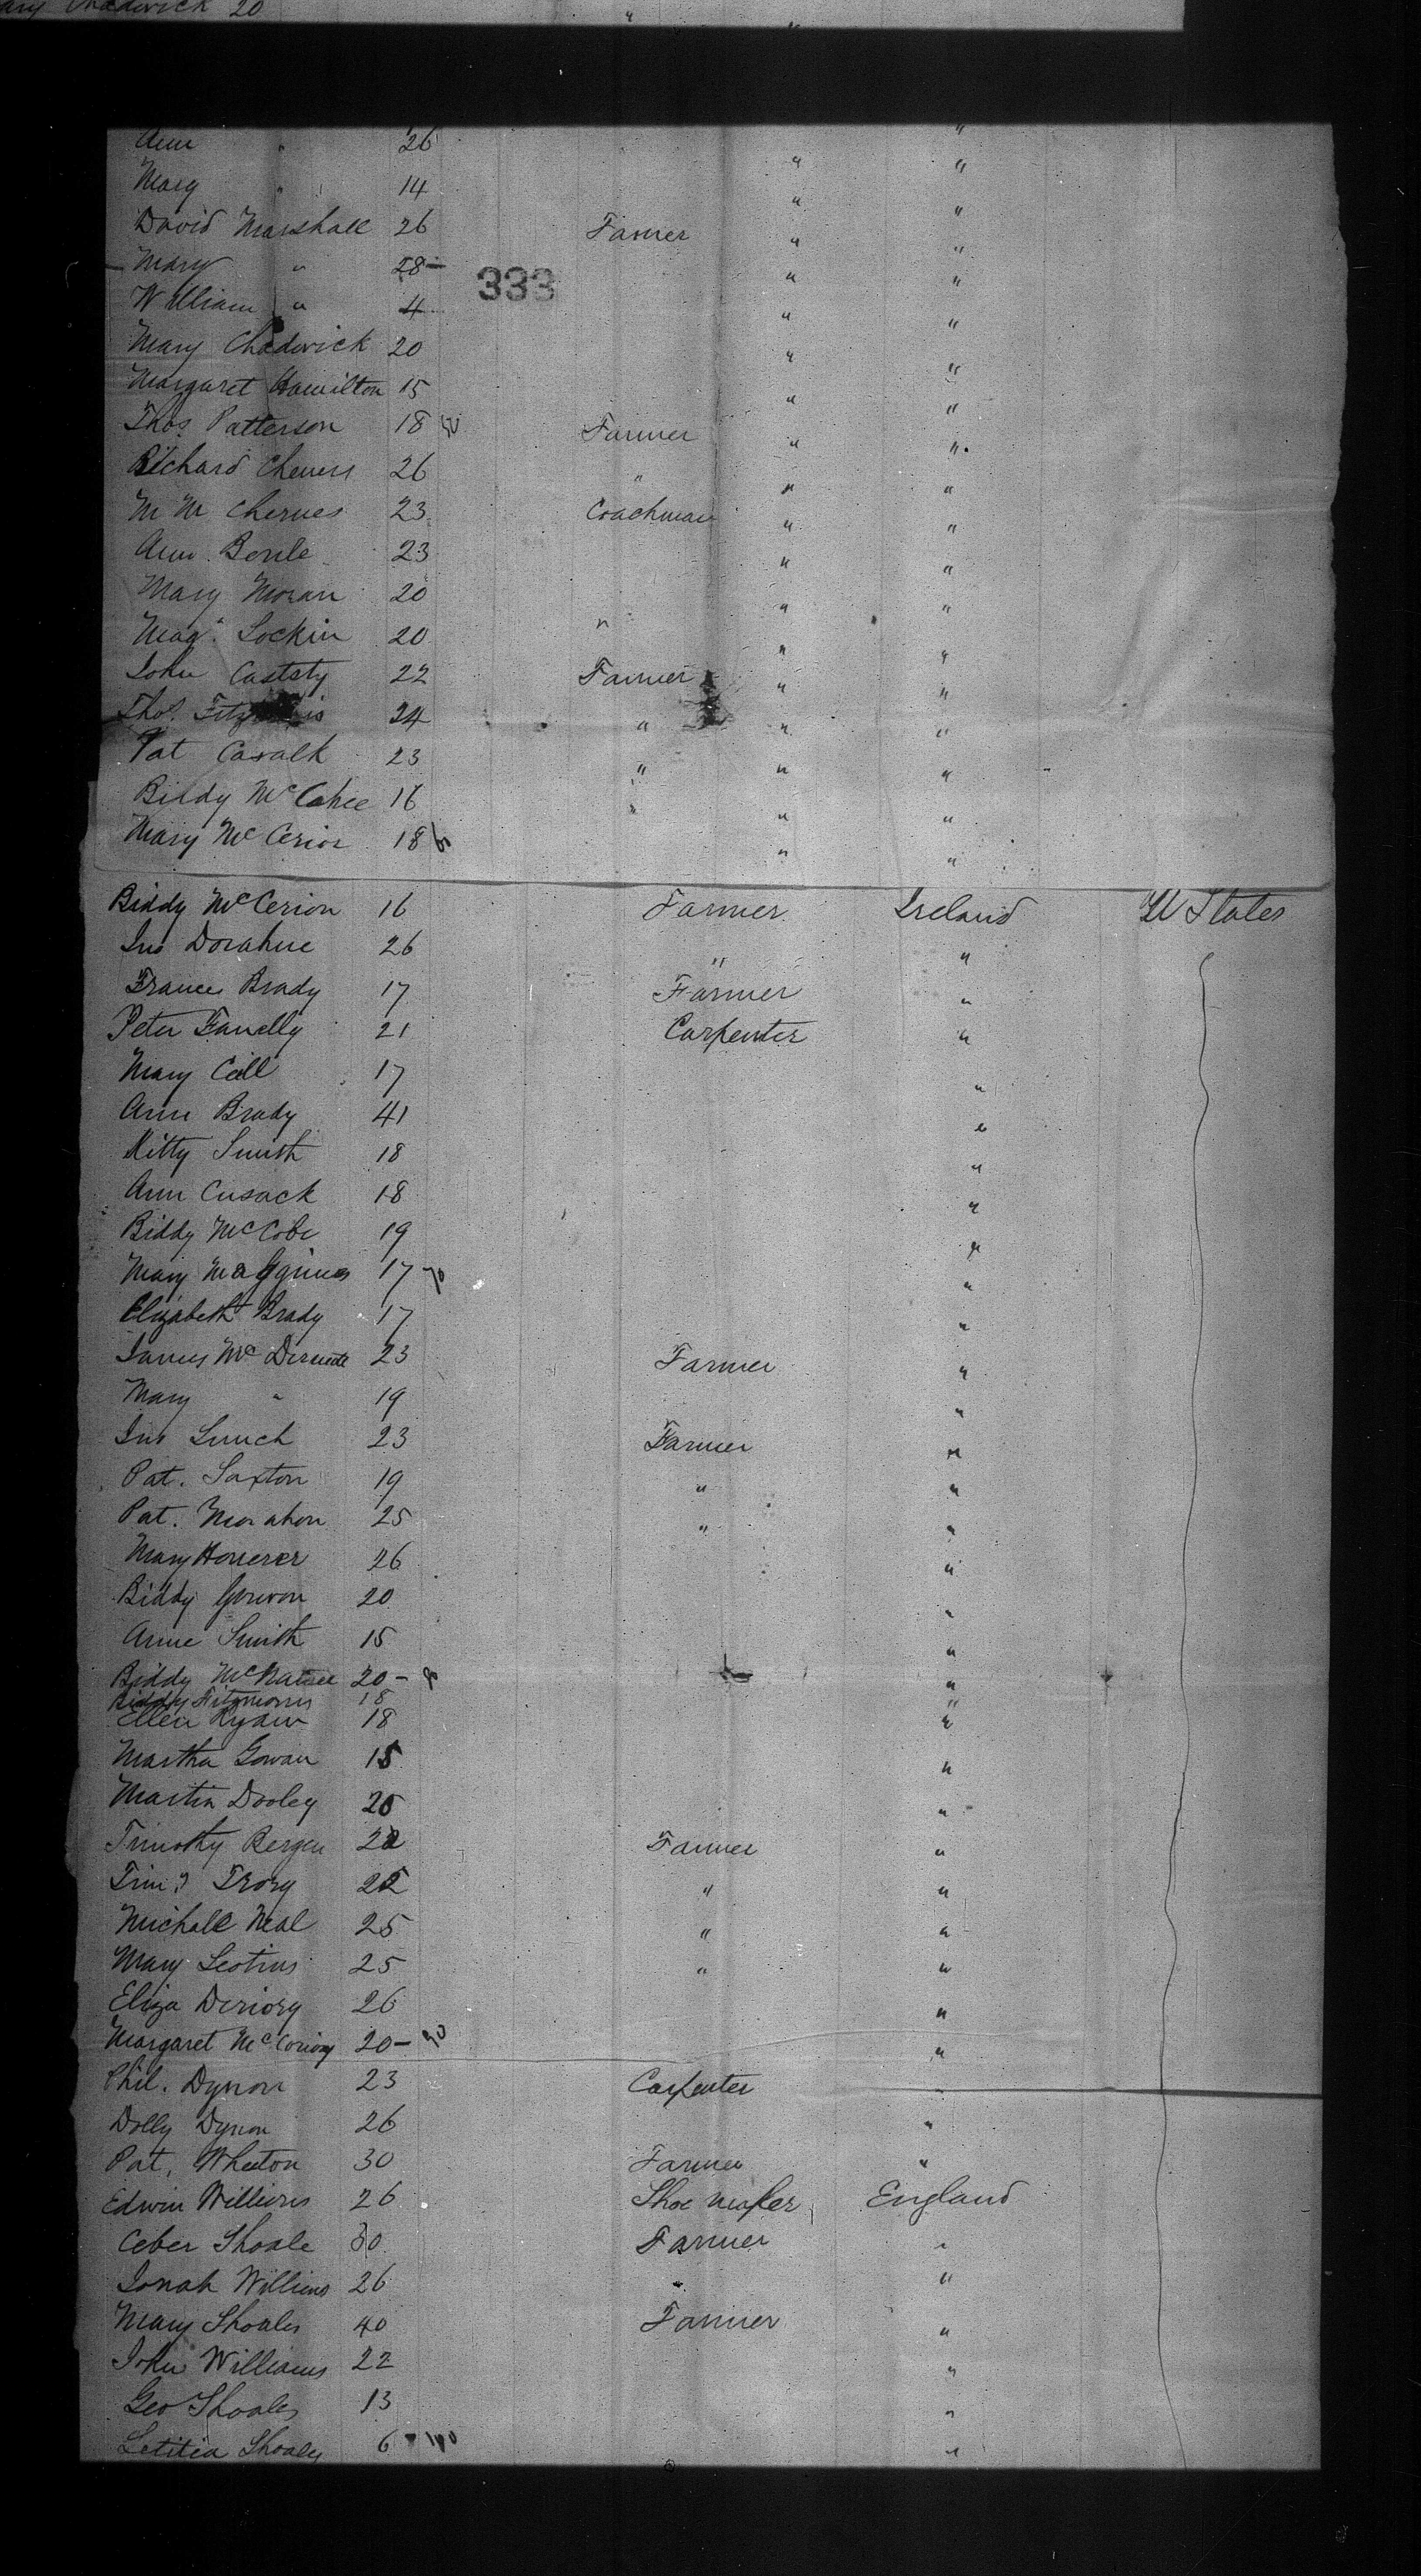 Mary Chadwick 20 "
Ann " 26 " "
Mary " 14 " "
David Marshall 26 Farmer " "
Mary " 28 " "
333
William " 4 " "
Mary Chadwick 20 " "
Margaret Hamilton 15 " "
Thos Patterson 18 50 Farmer " "
Richard Chevers 26 " " "
M M Cherves 23 Coachman " "
Ann Berile 23 " "
Mary Moran 20 " "
Mag. Lockin 20 " " "
John Caststy 22 Farmer " "
Thos. 24 " " "
Pat Cavalk 23 " " "
Biddy McCahee 16 " " "
Mary McCerion 18 60 " "
Biddy McCerion 16 Farmer Ireland U States
Jno Donahue 26 " "
Frances Brady 17 Farmer "
Peter Fanelly 21 Carpenter "
Mary Call 17 "
Ann Brady 41 "
Kitty Smith 18 "
Ann Cusack 18 "
Biddy McCobe 19 "
Mary Magginnes 17 70 "
Elizabeth Brady 17 "
James McDermott 23 Farmer "
Mary " 19 "
Jno Lynch 23 Farmer "
Pat. Saxton 19 " "
Pat. Monahon 25 " "
Mary Honerer 26 "
Biddy Gowon 20 "
Anne Smith 15 "
Biddy 20 - 8 "
Biddy Fitzmorris 18 "
Ellen Ryan 18 "
Martha Gowan 15 "
Martin Dooley 25 "
Timothy Bergen 22 Farmer "
Tim.y Trory 22 " "
Michall Neal 25 " "
Mary Leotins 25 " "
Eliza Deriory 26 "
Margaret McConory 20 - 90 "
Phil. Dynon 23 Carpenter "
Dolly Dynon 26 "
Pat. Wheeton 30 Farmer "
Edwin Williams 26 Shoe maker England
Ceber Shoale 30 Farmer "
Jonah Williams 26 " "
Mary Shoales 40 Farmer "
John Williams 22 "
Geo Shoales 13 "
Letitia Shoales 6 - 100 "